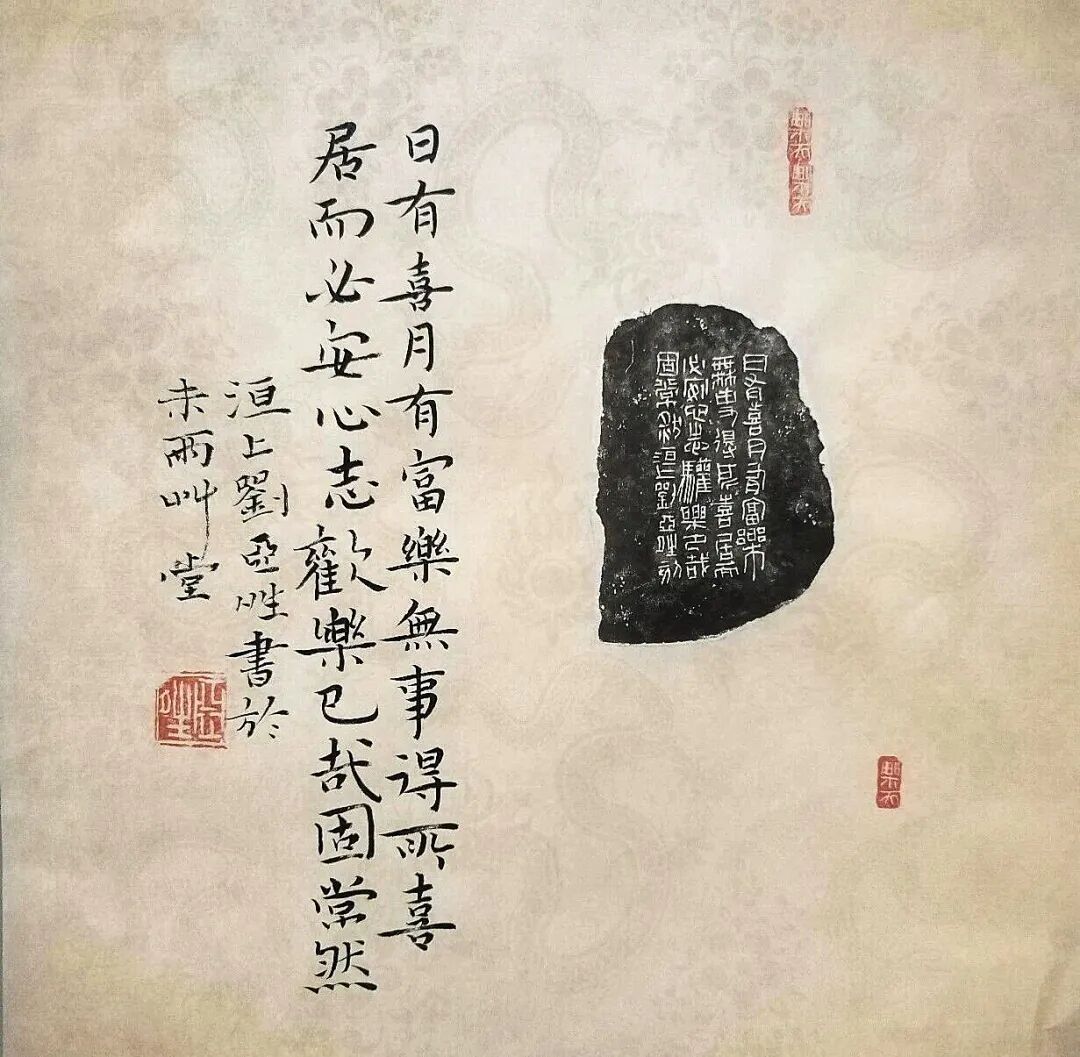 日有喜月有富樂
無事得所喜居而
必安心志驩樂已哉
固常然洹上劉亞刻
日有喜月有富樂無事得所喜
居而必安心志歡樂已哉固常然
洹上劉亞書於
未雨艸堂